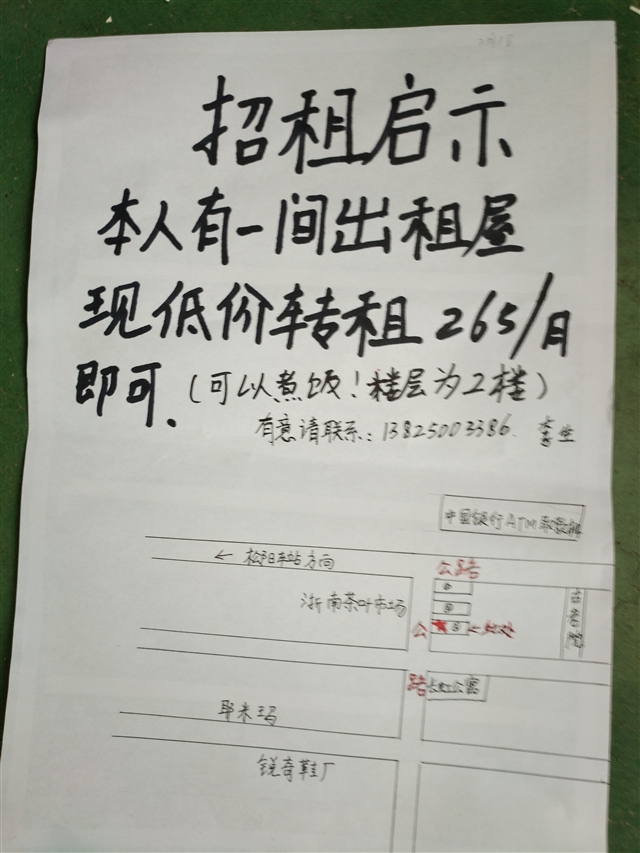 招租启示
本人有一间出租屋
现低价转租 265/月
即可.(可以煮饭!楼层为2楼)
有意请联系:13825003386. 李生
中国银行ATM取款机
← 松阳车站方向
公路
浙南茶叶市场
①
②
公 ③ ←此处
路 长虹公寓
耶米玛
锐奇鞋厂